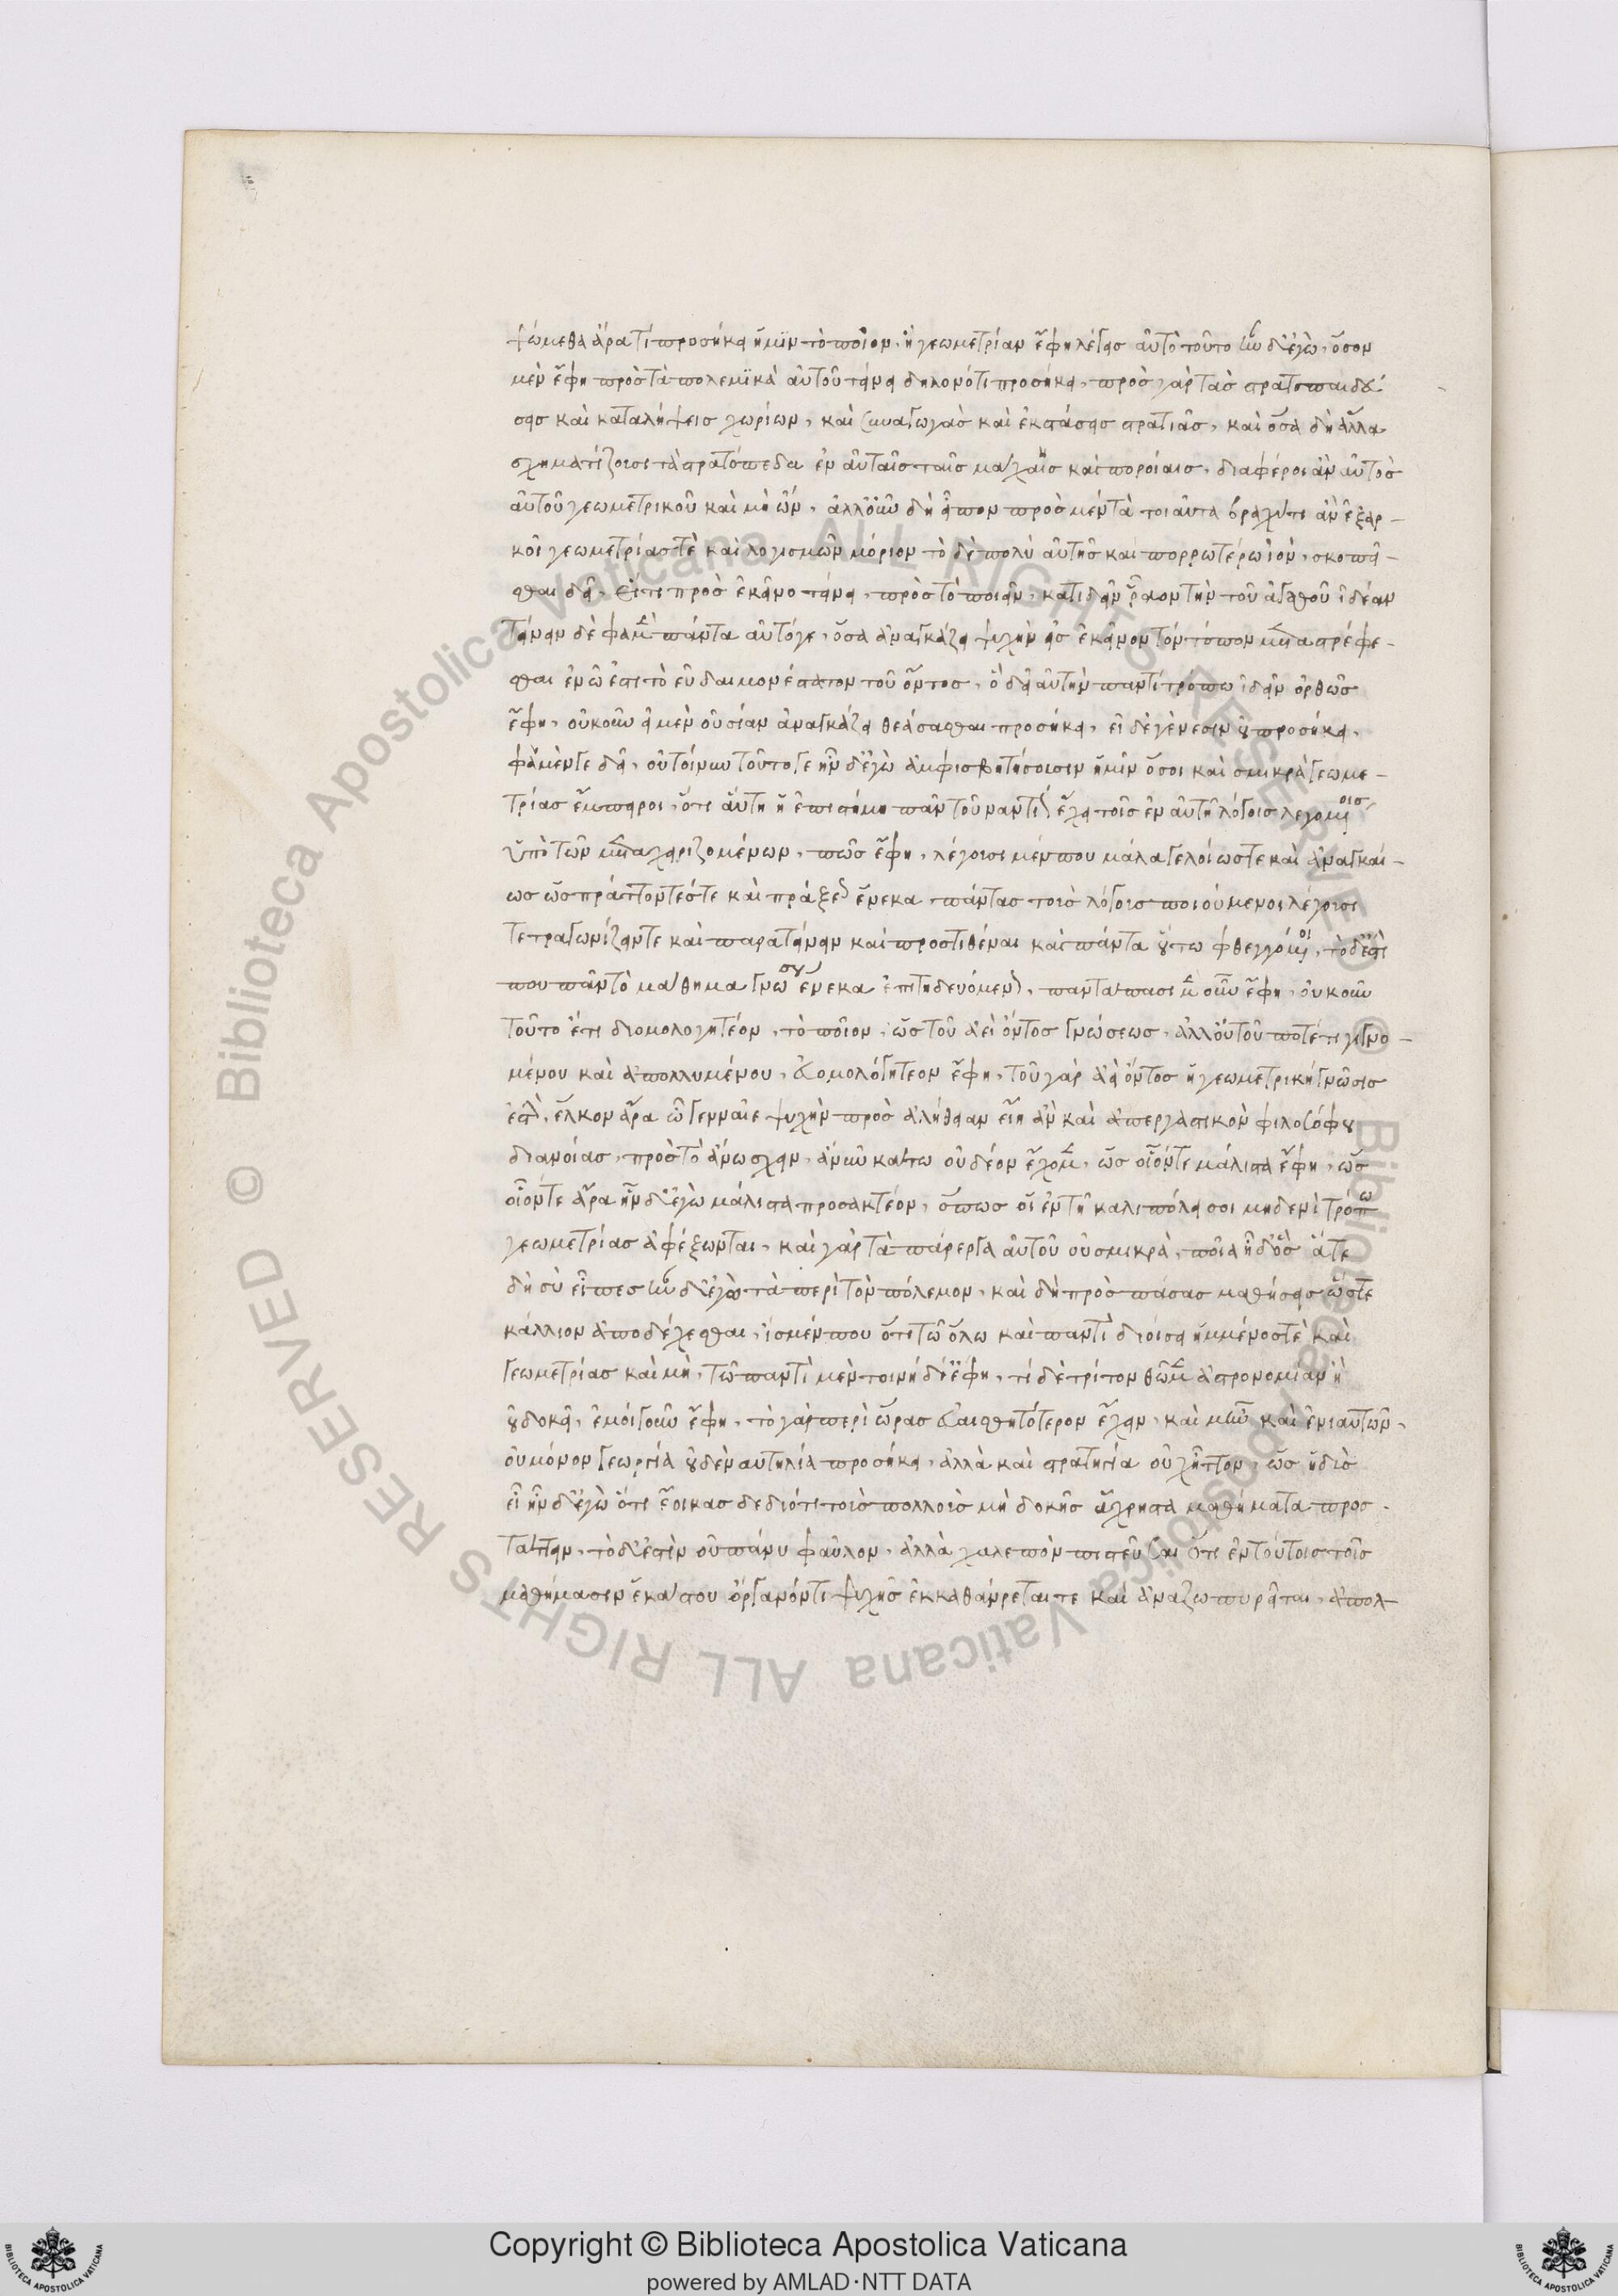 ψώμεθα ἆρα τί προσήκει ἡμῖν τὸ ποῖον, ἢ γεωμετρίαν ἔφη λέγεις αὐτὸ τοῦτο ἦν δ' ἐγὼ, ὅσον
μὲν ἔφη πρὸς τὰ πολεμϊκὰ αὐτοῦ τείνει δηλονότι προσήκει, πρὸς γὰρ τὰς στρατοπαιδεύ
σεις καὶ καταλήψεις χωρίων, καὶ συναγωγὰς καὶ ἐκτάσεις στρατιᾶς, καὶ ὅσα δὴ ἄλλα
σχηματίζουσι τὰ στρατόπεδα ἐν αὐταῖς ταῖς μάχαις καὶ πορείαις, διαφέροι ἂν αὐτὸς
αὑτοῦ γεωμετρικοῦ καὶ μὴ ὤν, ἀλλ' οὖν δὴ εἶπον πρὸς μὲν τὰ τοιαῦτα βραχύ τι ἂν ἐξαρ-
κοῖ γεωμετρίας τὲ καὶ λογισμῶν μόριον τὸ δὲ πολὺ αὐτῆς καὶ πορρωτέρω ἰὸν, σκοπεῖ-
σθαι δεῖ, εἴ τι πρὸς ἐκεῖνο τείνει, πρὸς τὸ ποιεῖν, κατιδεῖν ῥᾷον τὴν τοῦ ἀγαθοῦ ἰδέαν
τείνειν δὲ φαμὲν πάντα αὐτόγε, ὅσα ἀναγκάζει ψυχὴν εἰς ἐκεῖνον τὸν τόπον μεταστρέφε-
σθαι ἐν ᾧ ἐστι τὸ εὐδαιμονέστατον τοῦ ὄντος, ὃ δεῖ αὐτὴν παντὶ τρόπω ἰδεῖν ὀρθῶς
ἔφη, οὐκοῦν εἰ μὲν οὐσίαν ἀναγκάζει θεάσασθαι προσήκει, εἰ δὲ γένεσιν οὐ προσήκει,
φάμέν γε δεῖ, οὐ τοίνυν τοῦτο γε ἦν δ' ἐγὼ ἀμφισβητήσουσιν ἡμῖν ὅσοι καὶ σμικρὰ γεωμε-
τρίας ἔμπειροι, ὅτι αὕτη ἡ ἐπιστήμη πᾶν τοὐναντίον ἔχει τοῖς ἐν αὐτῇ λόγοις λεγομένοις
ὑπὸ τῶν μεταχειριζομένων, πῶς ἔφη, λέγουσι μέν που μάλα γελοίωστε καὶ ἀναγκαί-
ως ὡς πράττοντέςτε καὶ πράξεως ἕνεκα πάντας τοὺς λόγους ποιούμενοι λέγουσι
τετραγωνίζειντε καὶ παρατείνειν καὶ προστιθέναι καὶ πάντα οὕτω φθεγγόμενοι, τὸ δ' ἔστι
που πᾶν τὸ μάθημα γνώσεως ἕνεκα ἐπιτηδευόμενον, παντάπασι μὲν οὖν ἔφη, οὐκοῦν
τοῦτο ἔτι διομολογητέον, τὸ ποῖον, ὡς τοῦ ἀεὶ ὄντος γνώσεως, ἀλλ' οὐ τοῦ ποτέ τι γιγνο-
μένου καὶ ἀπολλυμένου, εὐομολόγητεον ἔφη, τοῦ γὰρ ἀεὶ ὄντος ἡ γεωμετρικὴ γνῶσις
ἐστὶν, ἕλκον ἄρα ὦ γενναῖε ψυχὴν πρὸς ἀλήθειαν εἴη ἂν καὶ ἀπεργαστικὸν φιλοσόφου
διανοίας, πρὸς τὸ ἄνω σχεῖν, ἃ νῦν κάτω οὐ δέον ἔχομεν, ὡς οἷόν τε μάλιστα ἔφη, ὡς
οἷόν τε ἄρα ἦν δ' ἐγὼ μάλιστα προσακτέον, ὅπως οἱ ἐν τῇ καλιπόλει σοι μηδενὶ τρόπω
γεωμετρίας ἀφέξωνται, καὶ γὰρ τὰ πάρεργα αὐτοῦ οὐ σμικρὰ, ποῖα ἦ δ' ὅς ἅ τε
δὴ σὺ εἶπες ἦν δ' ἐγὼ τὰ περὶ τὸν πόλεμον, καὶ δὴ πρὸς πάσας μαθήσεις ὥστε
κάλλιον ἀποδέχεσθαι, ἴσμέν που ὅτι τῶ ὅλω καὶ παντὶ διοίσει ἡμμένος τὲ καὶ
γεωμετρίας καὶ μὴ, τῶ παντὶ μέν τοι νὴ δί' ἔφη, τί δὲ τρίτον θῶμεν ἀστρονομίαν ἢ
οὐ δοκεῖ, ἐμοί γοῦν ἔφη, τὸ γὰρ περὶ ὥρας εὐαισθητότερον ἔχειν, καὶ μηνῶν καὶ ἐνιαυτῶν,
οὐ μόνον γεωργία οὐδὲ ναυτιλία προσήκει, ἀλλὰ καὶ στρατηγία οὐχ ἧττον, ὡς ἡδὺς
εἶ ἦν δ' ἐγὼ ὅτι ἔοικας δεδιότι τοὺς πολλοὺς μὴ δοκῇς ἄχρηστα μαθήματα προσ-
τάττειν, τὸ δ' ἐστὶν οὐ πάνυ φαῦλον, ἀλλὰ χαλεπὸν πιστεῦσαι ὅτι ἐν τούτοις τοῖς
μαθήμασιν ἑκάστου ὄργανόν τι ψυχῆς ἐκκαθαίρεταί τε καὶ ἀναζωπυρεῖται, ἀπολ-
© Biblioteca Apostolica Vaticana ALL RIGHTS RESERVED
© Biblioteca Apostolica Vaticana ALL RIGHTS RESERVED
Copyright © Biblioteca Apostolica Vaticana
powered by AMLAD·NTT DATA
BIBLIOTECA APOSTOLICA VATICANA
BIBLIOTECA APOSTOLICA VATICANA